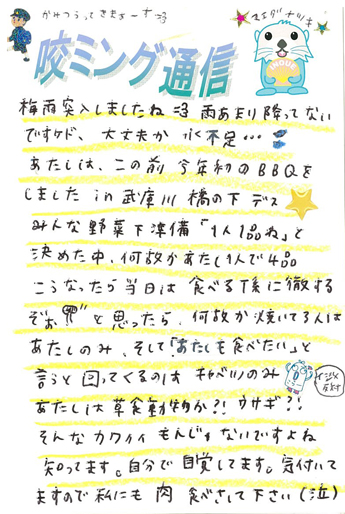 かみつうってきまぁーす
マエダ ナツキ
咬ミング通信
INOUE
梅雨突入しましたね 雨あまり降ってない
ですケド、大丈夫か 水不足…
あたしは、この前 今年初のBBQを
しました in 武庫川 橋の下 デス
みんな 野菜下準備「1人1品ね」と
決めた中、何故かあたし1人で4品
こうなったら当日は 食べる係に徹する
ぞぉ と思ったら、何故か焼いてる人は
あたしのみ、そして「あたしも食べたい」と
言うと回ってくるのは キャベツのみ
イジメ反対
あたしは草食動物か?! ウサギ?!
そんなカワイイ もんじゃないですよね
知ってます。自分で自覚してます。気付いて
ますので 私にも 肉 食べさして下さい(泣)